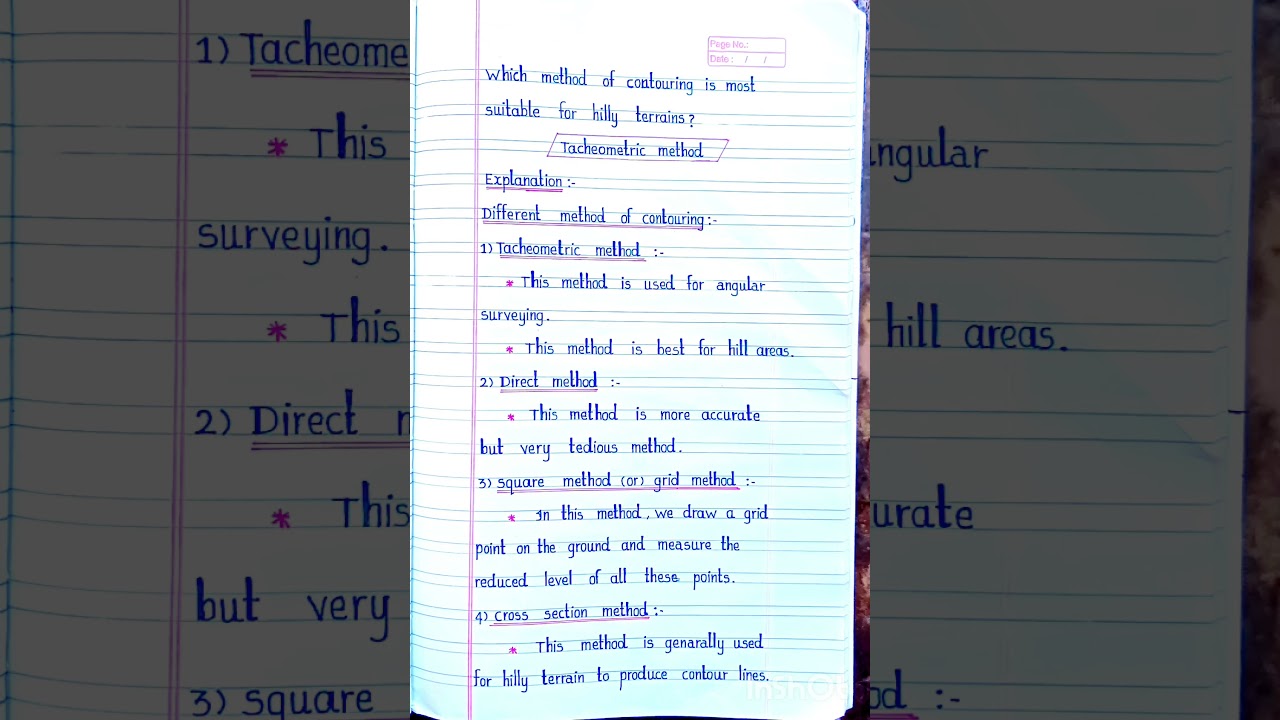 Page No.:
Date: / /
Which method of contouring is most
suitable for hilly terrains?
Tacheometric method
Explanation :-
Different method of contouring:-
1) Tacheometric method :-
* This method is used for angular
surveying.
* This method is best for hill areas.
2) Direct method :-
* This method is more accurate
but very tedious method.
3) square method (or) grid method :-
* In this method, we draw a grid
point on the ground and measure the
reduced level of all these points.
4) cross section method :-
* This method is genarally used
for hilly terrain to produce contour lines.
1) Tacheome
* This
ngular
surveying.
* This
hill areas.
2) Direct
* This
urate
but very
3) square
od :-